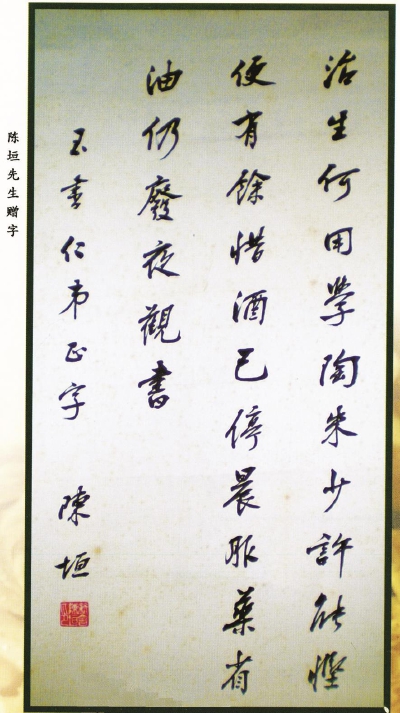 治生何用學陶朱少許能慳
便有餘惜酒已停晨服藥省
油仍廢夜觀書
玉書仁弟正字 陳垣
陈垣先生赠字